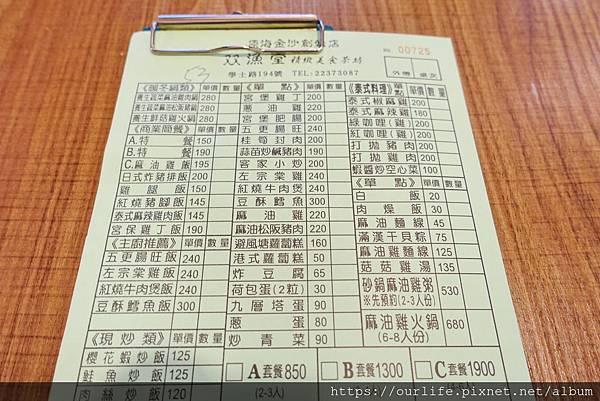 雲海金沙創飯店
双漁堂 精緻美食茶坊
學士路194號 TEL:22373087
No. 00725
外帶 桌次
《暖冬鍋類》 單價 數量
養生蔬菜麻油雞肉鍋 280
養生蔬菜麻油松阪豬鍋 280
養生鮮菇雞火鍋 280
《商業簡餐》 單價 數量
A.特餐 150
B.特餐 190
C.麻油雞飯 195
日式炸豬排飯 200
雞腿飯 150
紅燒豬腳飯 145
泰式麻辣雞肉飯 145
宮保雞丁飯 190
《主廚推薦》 單價 數量
五更腸旺飯 240
左宗棠雞飯 240
紅燒牛肉煲飯 240
豆酥鱈魚飯 300
《現炒類》 單價 數量
櫻花蝦炒飯 125
鮭魚炒飯 125
肉絲炒飯 120
《單點》 單價 數量
宮堡雞丁 200
蔥油雞 220
宮堡肥腸 200
五更腸旺 240
桂筍封肉 200
蒜苗炒鹹豬肉 190
客家小炒 200
左宗棠雞 240
紅燒牛肉煲 240
豆酥鱈魚 300
麻油雞 220
麻油松阪豬肉 220
避風塘蘿蔔糕 160
港式蘿蔔糕 50
炸豆腐 65
荷包蛋(2粒) 30
九層塔蛋 90
蔥蛋 80
炒青菜 90
《泰式料理》 單價 數量
泰式椒麻雞 200
泰式麻辣雞 180
綠咖哩(雞) 200
紅咖哩(雞) 200
打拋豬肉 200
打拋雞肉 200
蝦醬炒空心菜 100
《單點》 單價 數量
白飯 20
肉燥飯 30
麻油麵線 45
滿漢干貝粽 75
麻油雞麵線 125
菇菇雞湯 135
砂鍋麻油雞粥 530
※先預約(2-3人份)
麻油雞火鍋 680
(6-8人份)
A套餐850
(2-3人)
B套餐1300
C套餐1900
https://ourlife.pixnet.net/album